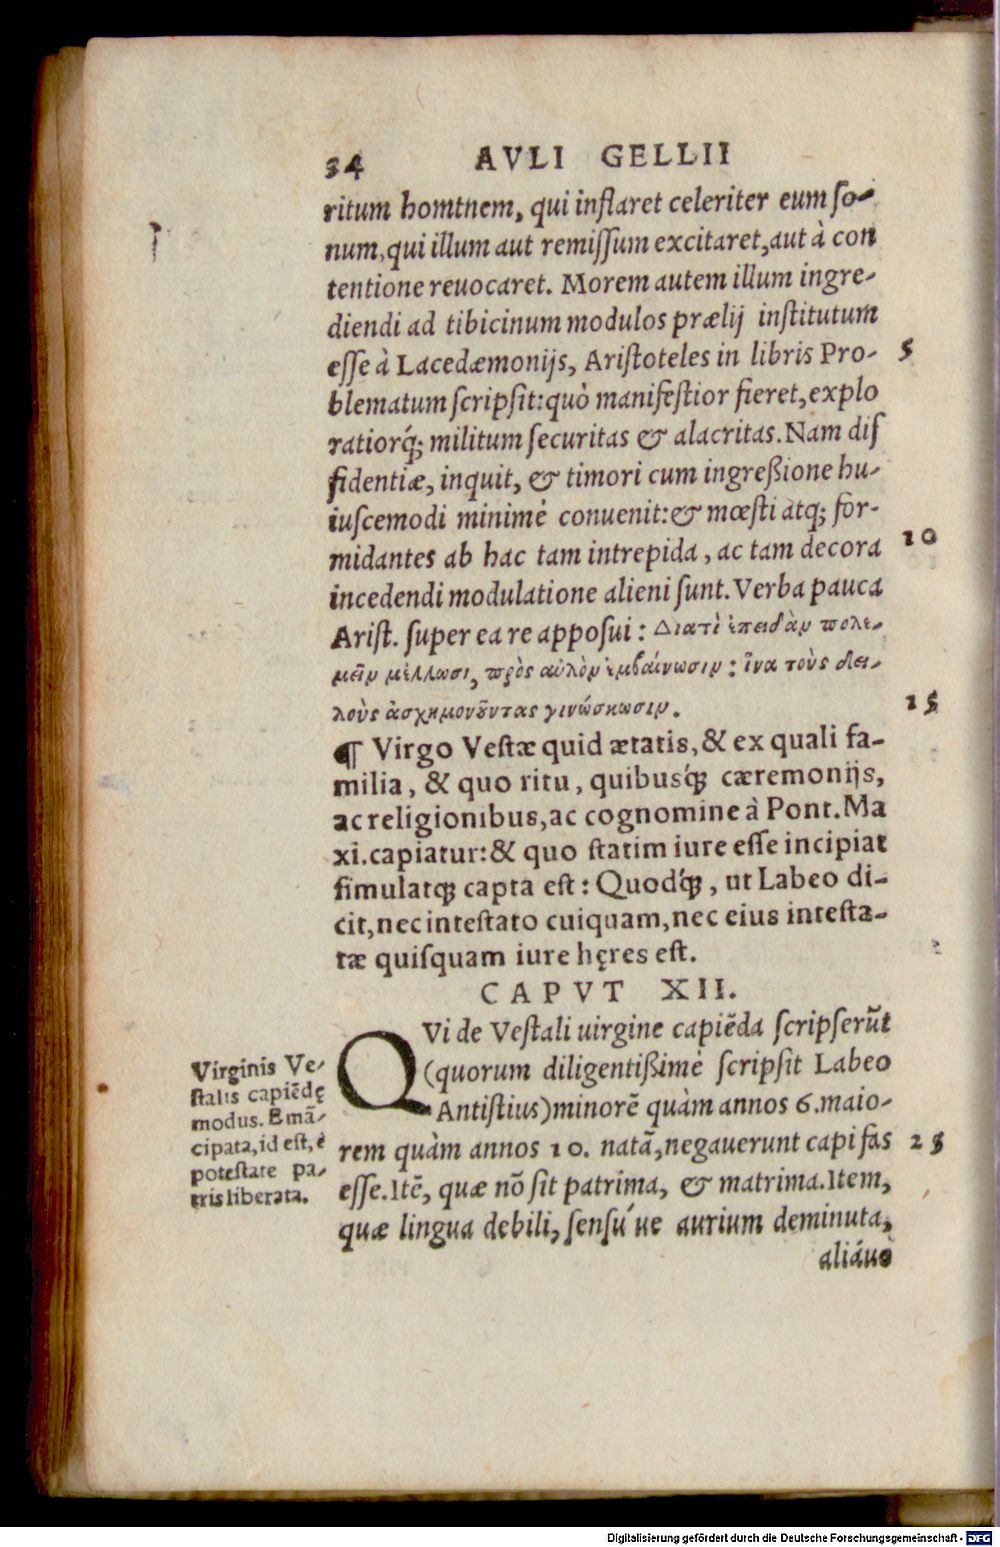 34 AVLI GELLII
ritum homtnem, qui inflaret celeriter eum ſo-
num, qui illum aut remiſſum excitaret, aut à con
tentione reuocaret. Morem autem illum ingre-
diendi ad tibicinum modulos prælij inſtitutum
eſſe à Lacedæmonijs, Ariſtoteles in libris Pro- 5
blematum ſcripſit: quò manifeſtior fieret, explo
ratiorq́; militum ſecuritas & alacritas. Nam diſ
fidentiæ, inquit, & timori cum ingreßione hu-
iuſcemodi minimè conuenit: & mœſti atq; for-
midantes ab hac tam intrepida, ac tam decora 10
incedendi modulatione alieni ſunt. Verba pauca
Ariſt. ſuper ea re appoſui: Διατὶ ἐπειδὰν πολε-
μεῖν μέλλωσι, πρὸς αὐλὸν ἐμβαίνωσιν: ἵνα τοὺς δει-
λοὺς ἀσχημονοῦντας γινώσκωσιν. 15
¶ Virgo Veſtæ quid ætatis, & ex quali fa-
milia, & quo ritu, quibusq́; cæremonijs,
ac religionibus, ac cognomine à Pont. Ma
xi. capiatur: & quo ſtatim iure eſſe incipiat
ſimulatq; capta eſt: Quodq́;, ut Labeo di-
cit, nec inteſtato cuiquam, nec eius inteſta-
tæ quiſquam iure hęres eſt.
CAPVT XII.
QVi de Veſtali uirgine capiēda ſcripſerūt
(quorum diligentißimè ſcripſit Labeo
Antiſtius) minorē quàm annos 6. maio-
rem quàm annos 10. natā, negauerunt capi fas 25
eſſe. Itē, quæ nō ſit patrima, & matrima. Item,
quæ lingua debili, ſenſu´ue aurium deminuta,
aliáue
Virginis Ve-
ſtalis capiēdę
modus. Emā-
cipata, id eſt, è
poteſtate pa-
tris liberata.
Digitalisierung gefördert durch die Deutsche Forschungsgemeinschaft - DFG